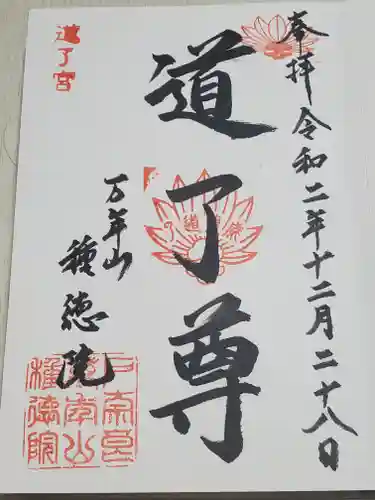 奉拝 令和二年十二月二十八日
道了尊
万年山
種徳院
道了宮